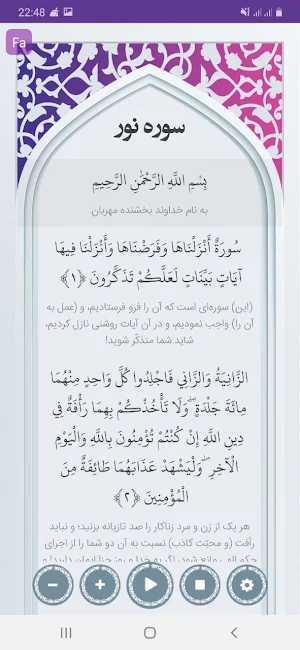 22:48
Fa
سوره نور
بِسْمِ اللَّهِ الرَّحْمَٰنِ الرَّحِيمِ
به نام خداوند بخشنده مهربان
سُورَةٌ أَنْزَلْنَاهَا وَفَرَضْنَاهَا وَأَنْزَلْنَا فِيهَا
آيَاتٍ بَيِّنَاتٍ لَعَلَّكُمْ تَذَكَّرُونَ ﴿١﴾
(این) سوره‌ای است که آن را فرو فرستادیم، و (عمل به
آن را) واجب نمودیم، و در آن آیات روشنی نازل کردیم،
شاید شما متذکّر شوید!
الزَّانِيَةُ وَالزَّانِي فَاجْلِدُوا كُلَّ وَاحِدٍ مِنْهُمَا
مِائَةَ جَلْدَةٍ ۖ وَلَا تَأْخُذْكُمْ بِهِمَا رَأْفَةٌ فِي
دِينِ اللَّهِ إِنْ كُنْتُمْ تُؤْمِنُونَ بِاللَّهِ وَالْيَوْمِ
الْآخِرِ ۖ وَلْيَشْهَدْ عَذَابَهُمَا طَائِفَةٌ مِنَ
الْمُؤْمِنِينَ ﴿٢﴾
هر یک از زن و مرد زناکار را صد تازیانه بزنید؛ و نباید
رأفت (و محبّت کاذب) نسبت به آن دو شما را از اجرای
حکم الهی مانع شود، اگر به خدا و روز جزا ایمان دارید! و